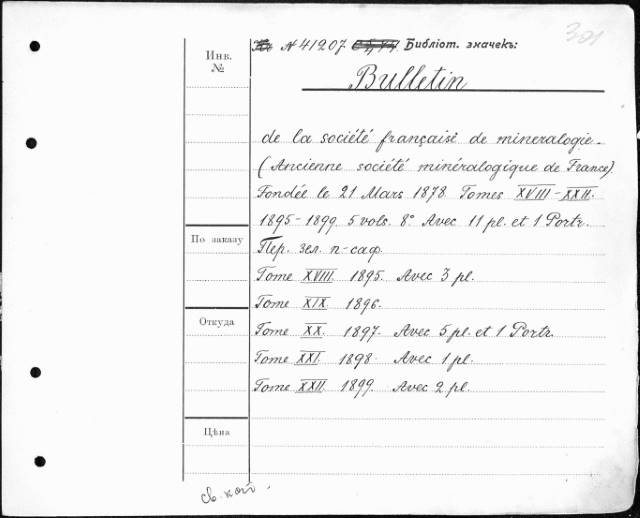 321
№ 41207. Библіот. значекъ:
Инв.
№
Bulletin
de la société française de mineralogie.
(Ancienne société minéralogique de France)
Fondée le 21 Mars 1878. Tomes XVIII-XXII.
1895-1899. 5 vols. 8° Avec 11 pl. et 1 Portr.
По заказу
Пер. зел. п-саф.
Tome XVIII. 1895. Avec 3 pl.
Tome XIX 1896.
Откуда
Tome XX. 1897. Avec 5 pl. et 1 Portr.
Tome XXI. 1898 Avec 1 pl.
Tome XXII. 1899. Avec 2 pl.
Цѣна
св. кат.